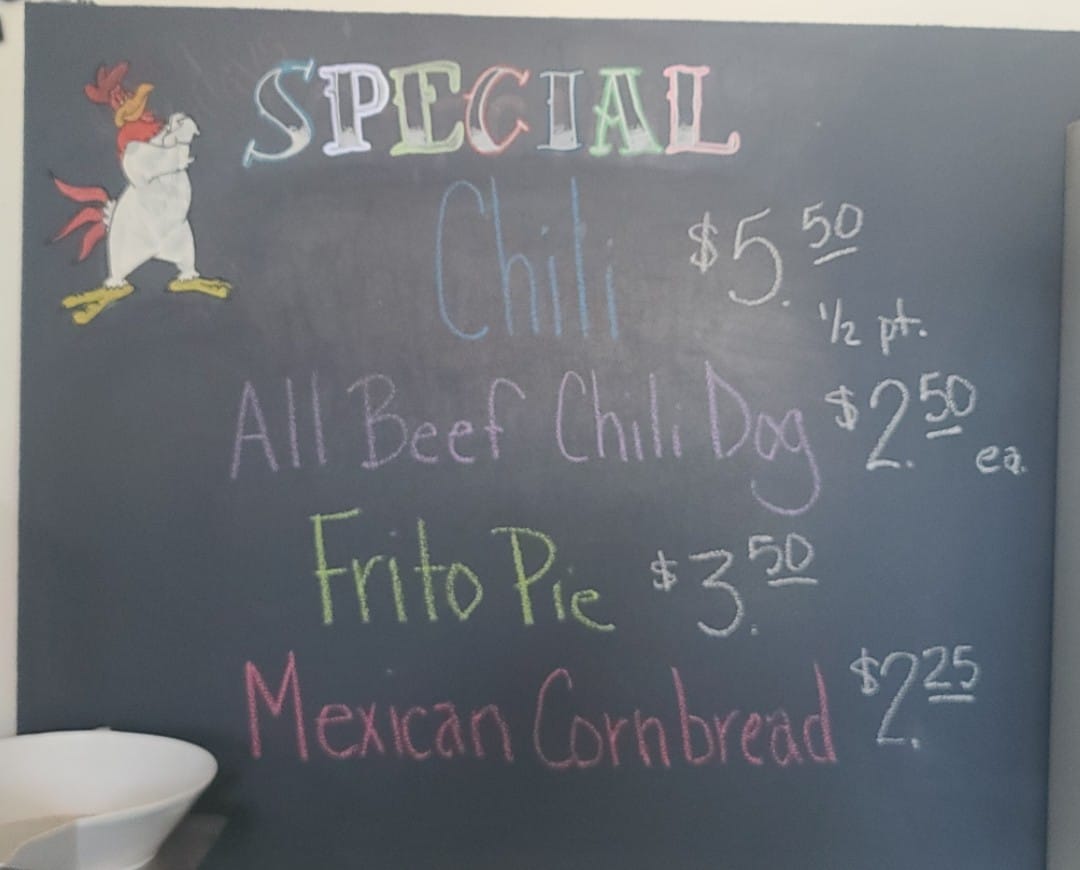 SPECIAL
Chili $5.50
1/2 pt.
All Beef Chili Dog $2.50 ea.
Frito Pie $3.50
Mexican Cornbread $2.25